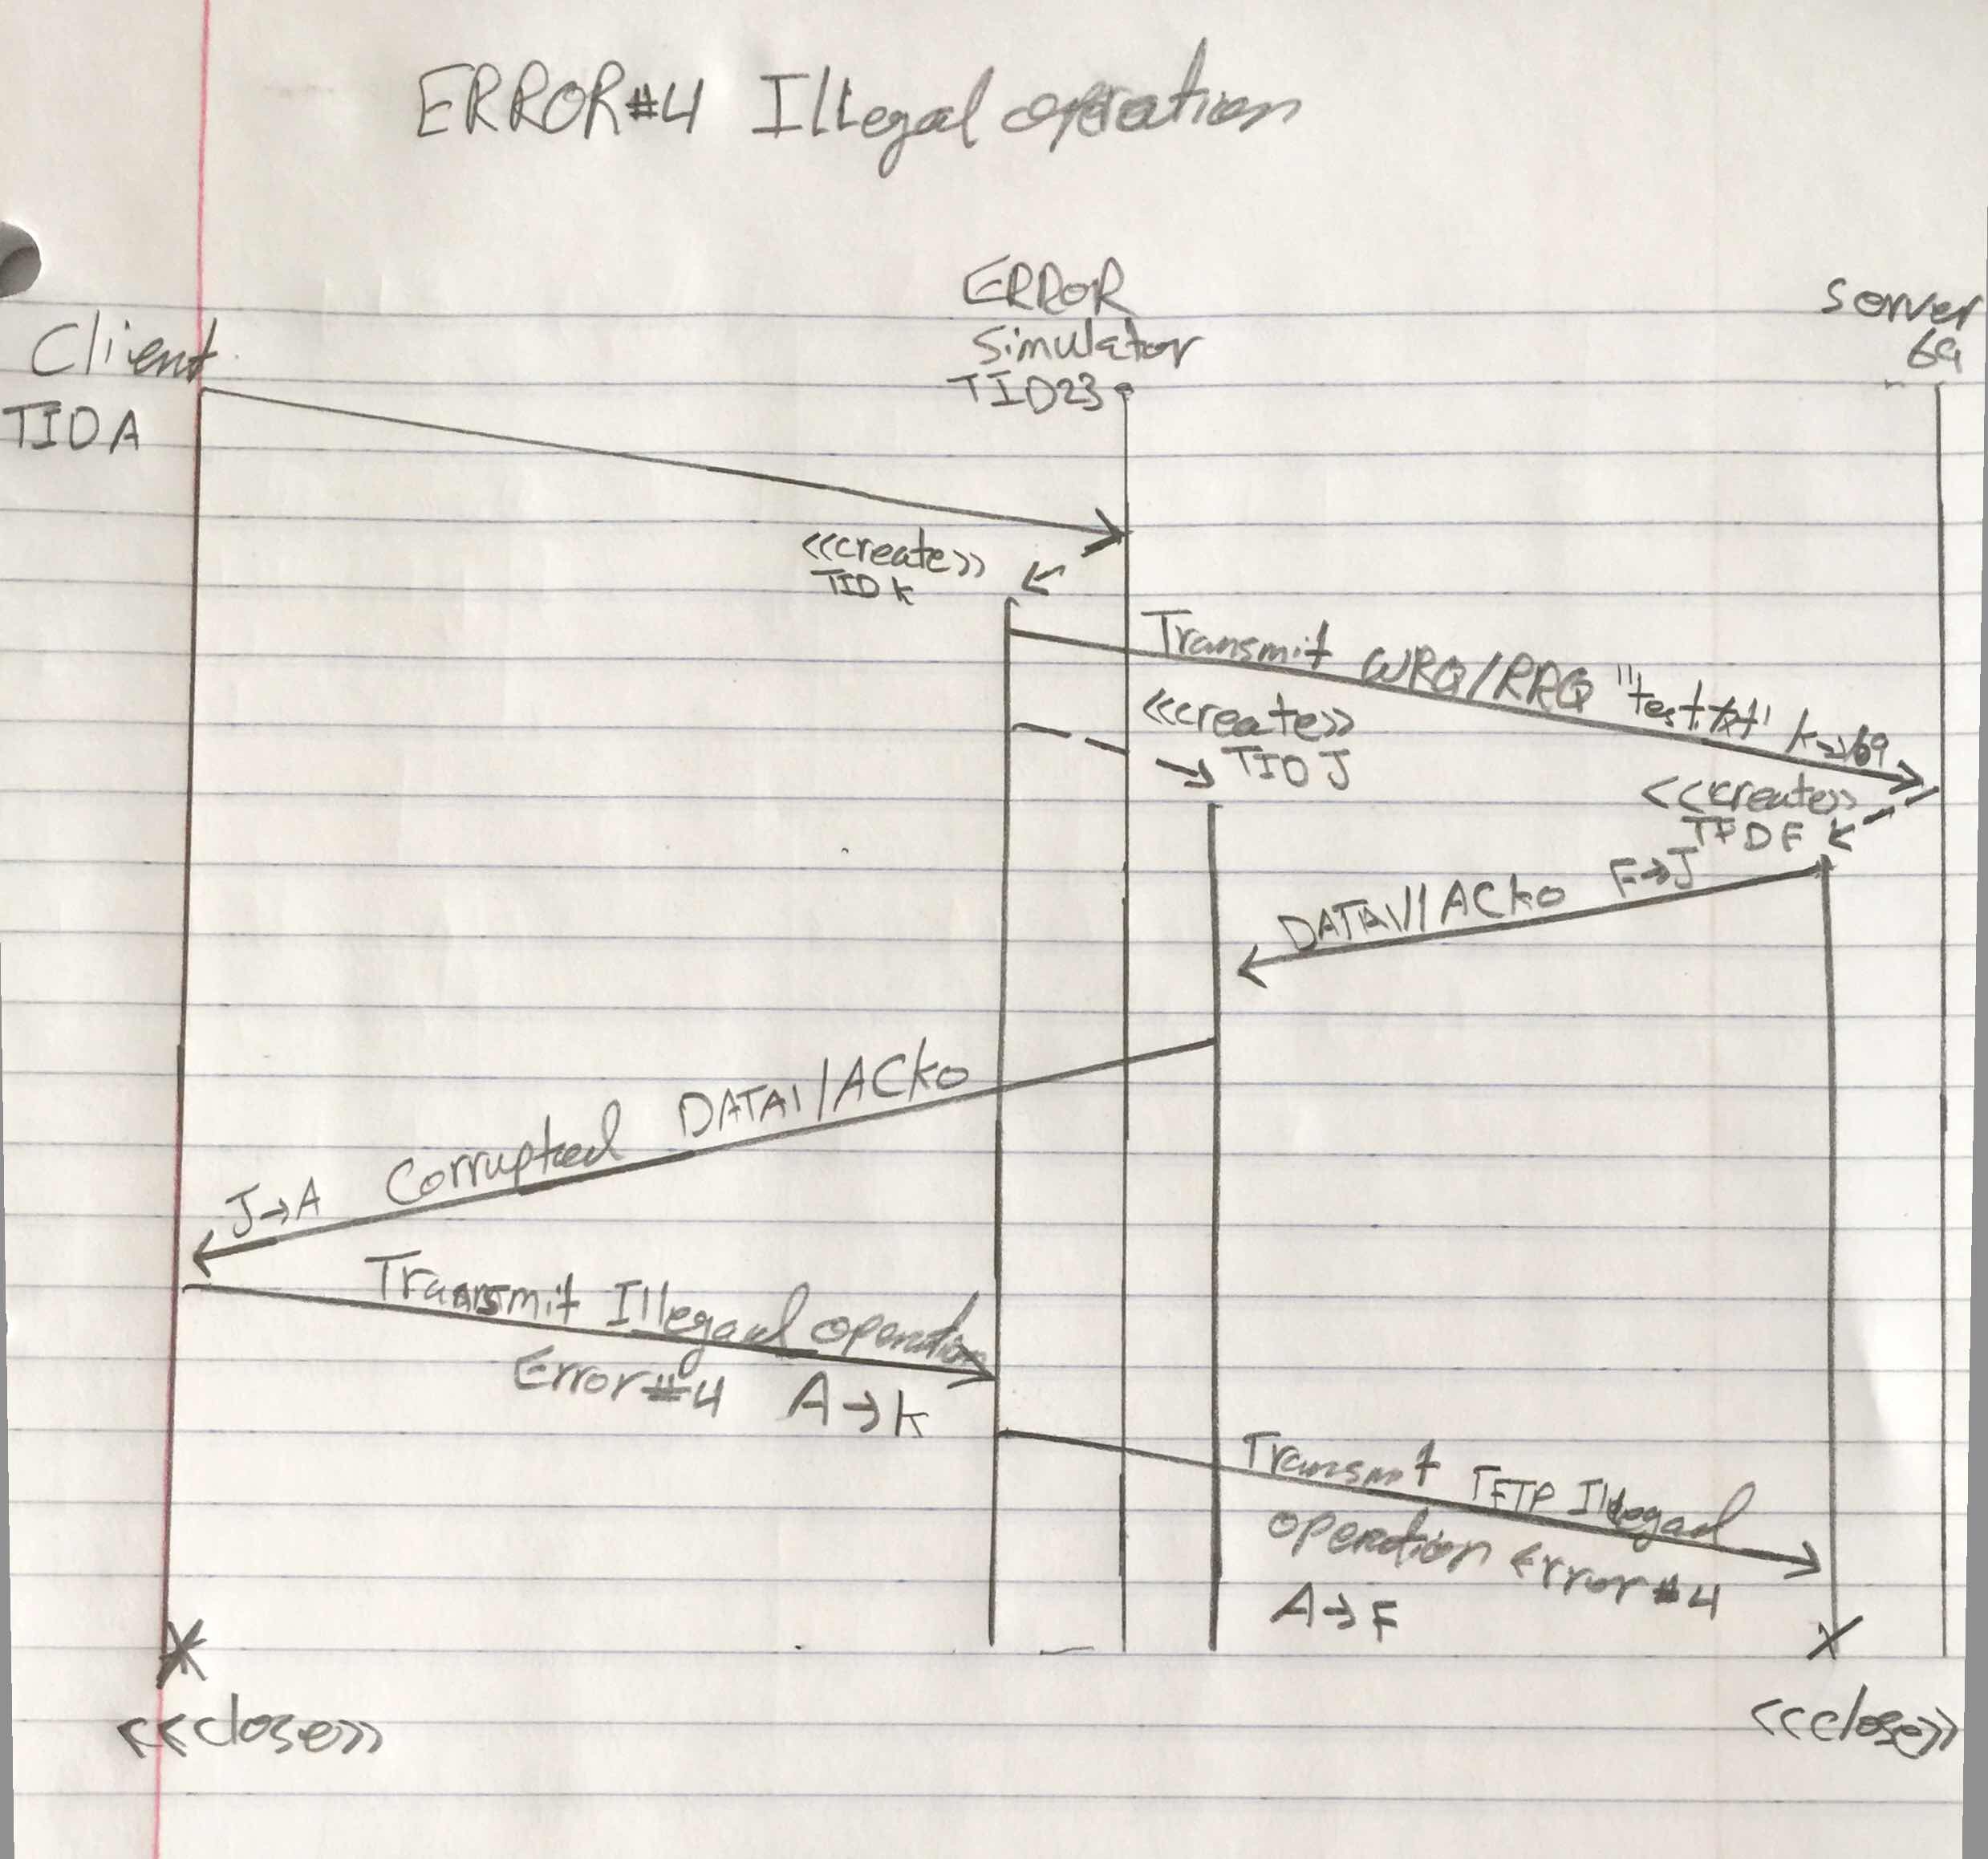 ERROR#4 Illegal operation
ERROR
Simulator
TID23
Server
69
Client
TIDA
<<create>>
TID K
Transmit WRQ/RRQ "test.txt" K→69
<<create>>
TID J
<<create>>
TID F
DATA1/ACK0 F→J
J→A Corrupted DATA1/ACK0
Transmit Illegal operation
Error#4 A→K
Transmit TFTP Illegal
operation Error#4
A→F
<<close>>
<<close>>